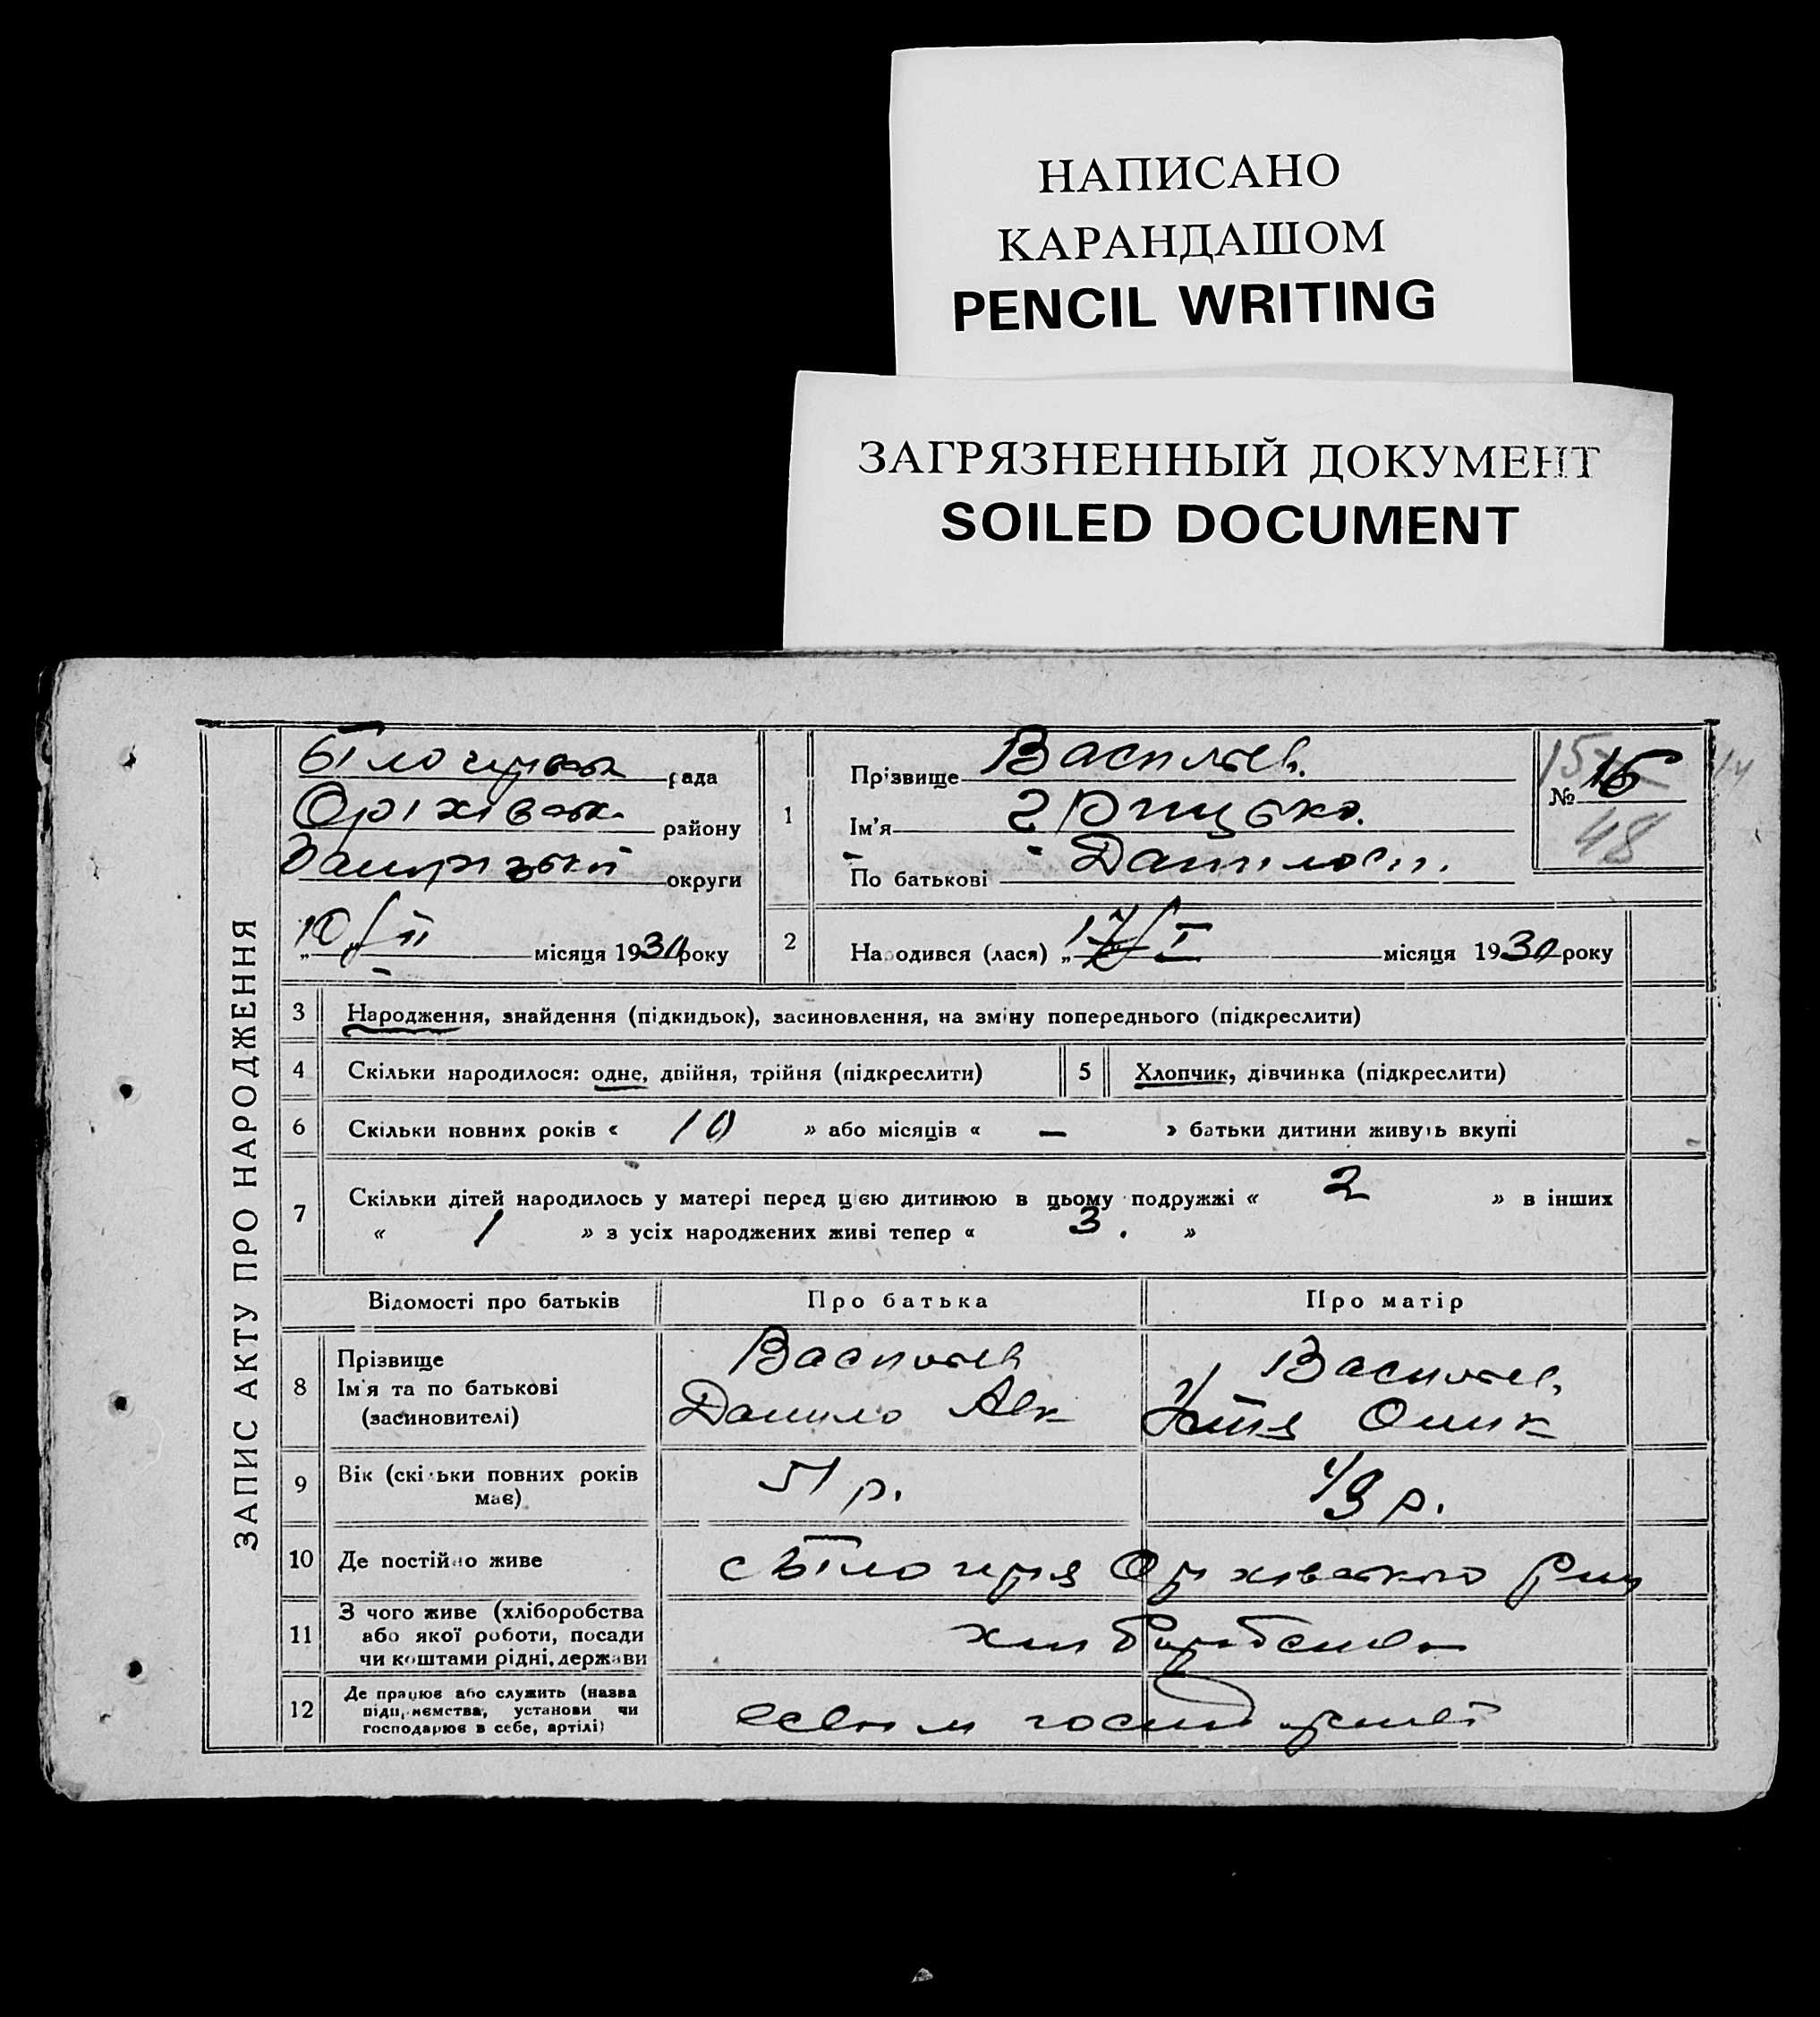 НАПИСАНО
КАРАНДАШОМ
PENCIL WRITING
ЗАГРЯЗНЕННЫЙ ДОКУМЕНТ
SOILED DOCUMENT
ЗАПИС АКТУ ПРО НАРОДЖЕННЯ
рада
району
округи
„10/II місяця 1930 року
1
Прізвище Васильев.
Ім'я Грицько.
По батькові Данилов.
№ 16
15
48
14
2
Народився (лася) „17/I місяця 1930 року
3 Народження, знайдення (підкидьок), засиновлення, на зміну попереднього (підкреслити)
4 Скільки народилося: одне, двійня, трійня (підкреслити)
5 Хлопчик, дівчинка (підкреслити)
6 Скільки повних років « 10 » або місяців « — » батьки дитини живуть вкупі
7 Скільки дітей народилось у матері перед цією дитиною в цьому подружжі « 2 » в інших
« 1 » з усіх народжених живі тепер « 3. »
Відомості про батьків Про батька Про матір
8 Прізвище
Ім'я та по батькові
(засиновителі)
Васильев
Данило Алк
Васильев.
9 Вік (скільки повних років
має)
51 р.
49 р.
10 Де постійно живе
11 З чого живе (хліборобства
або якої роботи, посади
чи коштами рідні, держави
12 Де працює або служить (назва
підприємства, установи чи
господарює в себе, артілі)